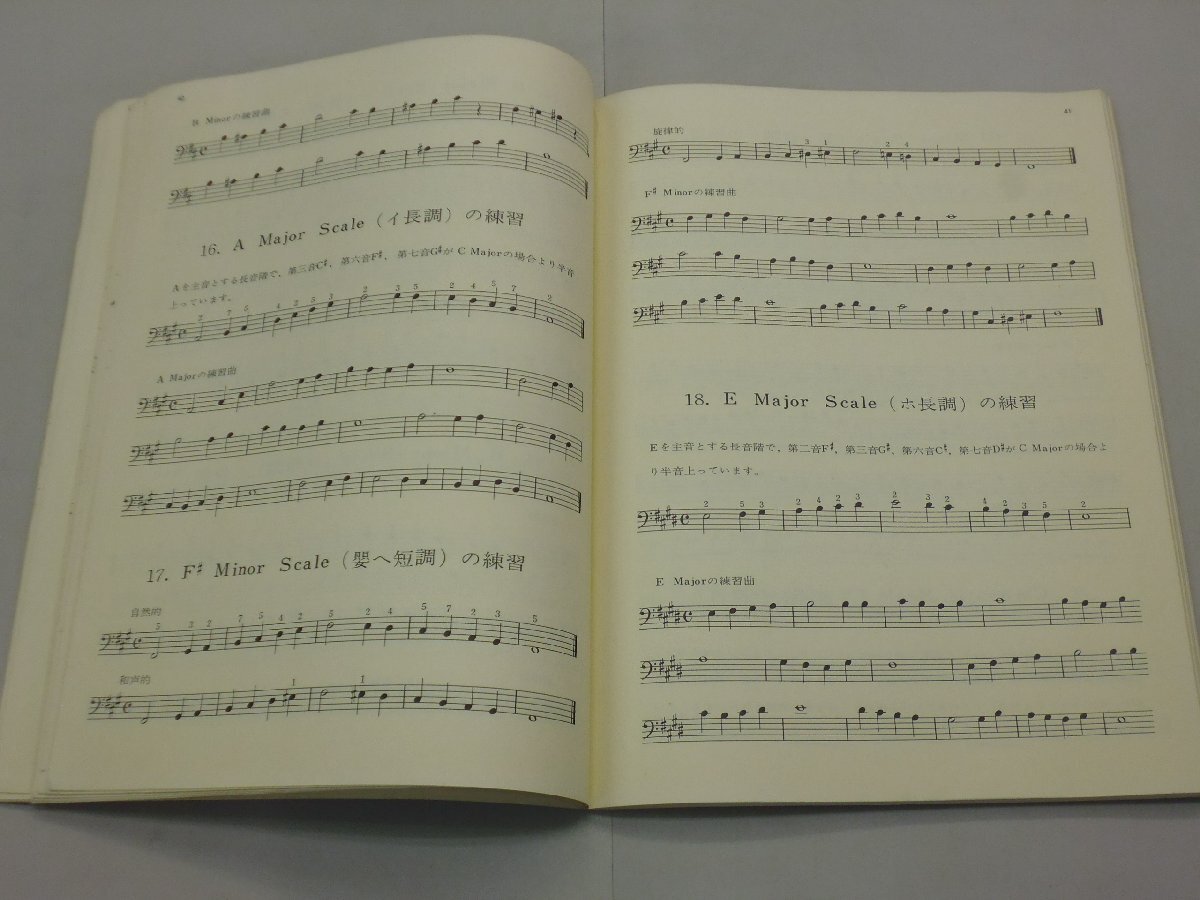 B Minorの練習曲
16. A Major Scale (イ長調) の練習
Aを主音とする長音階で、第三音C♯、第六音F♯、第七音G♯がC Majorの場合より半音
上っています。
2 7 5 4 2 5 3 2 3 5 2 4 5 7 2
A Majorの練習曲
17. F♯ Minor Scale (嬰ヘ短調) の練習
自然的
5 3 2 7 5 4 2 5 2 4 5 7 2 3 5
和声的
1 1
41
旋律的
3 1 2 4
F♯ Minorの練習曲
18. E Major Scale (ホ長調) の練習
Eを主音とする長音階で、第二音F♯、第三音G♯、第六音C♯、第七音D♯がC Majorの場合よ
り半音上っています。
2 5 3 2 4 2 3 2 3 2 4 2 3 5 2
E Majorの練習曲